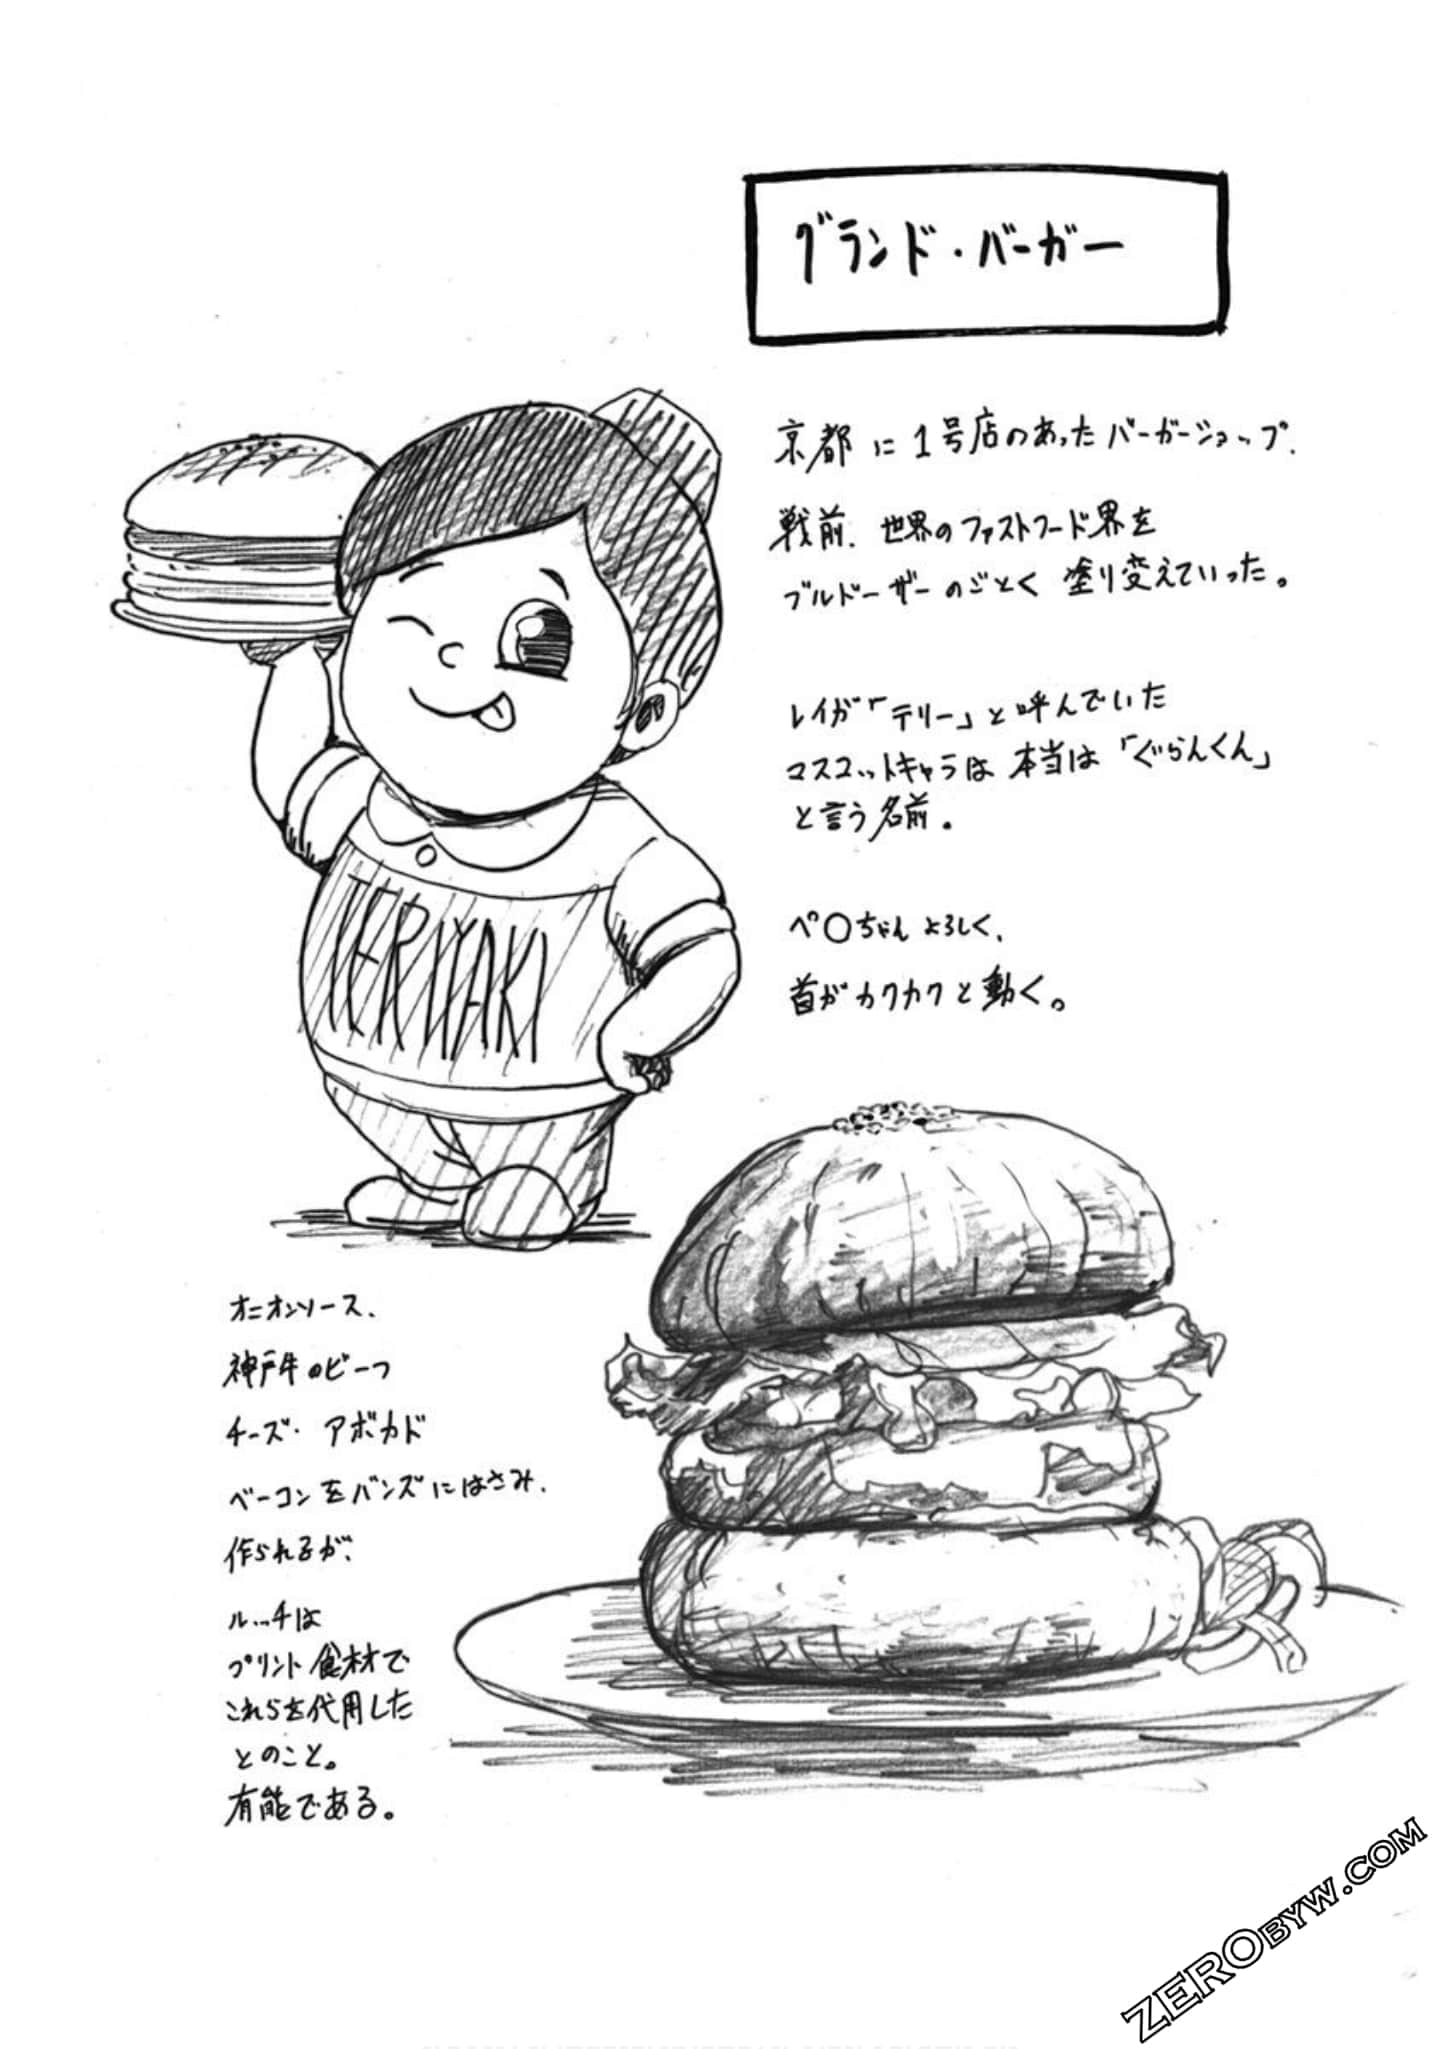 グランド・バーガー
京都に1号店のあったバーガーショップ.
戦前. 世界のファストフード界を
ブルドーザーのごとく 塗り変えていった。
レイが「テリー」と呼んでいた
マスコットキャラは 本当は「ぐらんくん」
と言う名前。
ペ〇ちゃん よろしく、
首がカクカクと動く。
TERIYAKI
オニオンソース、
神戸牛のビーフ
チーズ・アボカド
ベーコンをバンズにはさみ、
作られるが、
ルッチは
プリント食材で
これらを代用した
とのこと。
有能である。
ZEROBYW.COM